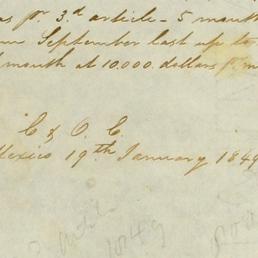 as pr 3.d article - 5 month
September last up to
month at 10.000. dollars p. m
E & O. E.
Mexico 19th January 1849
1849